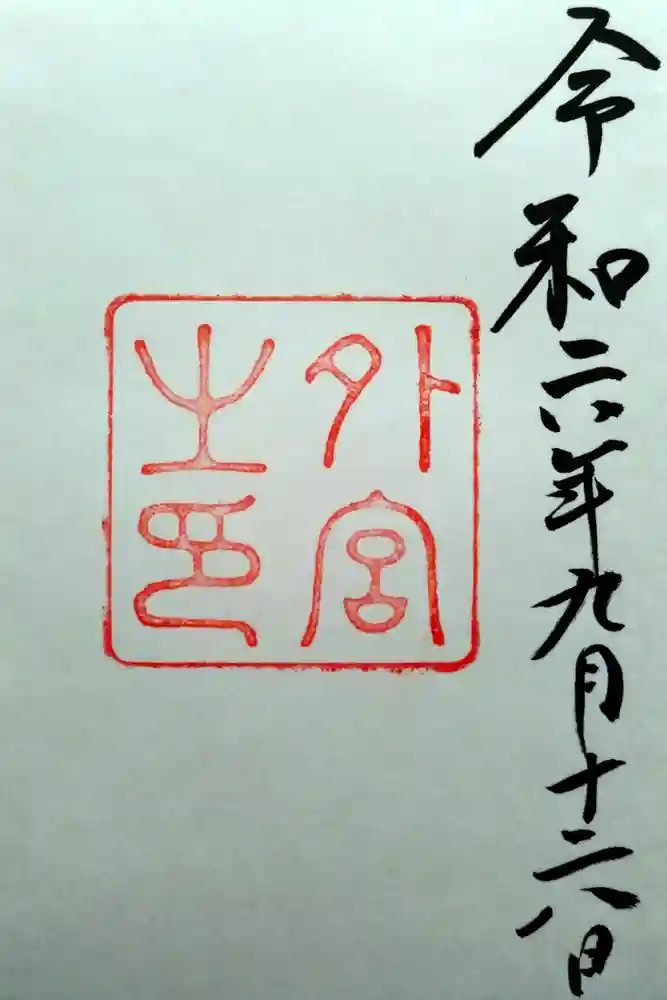 令和六年九月十六日
外宮
之印